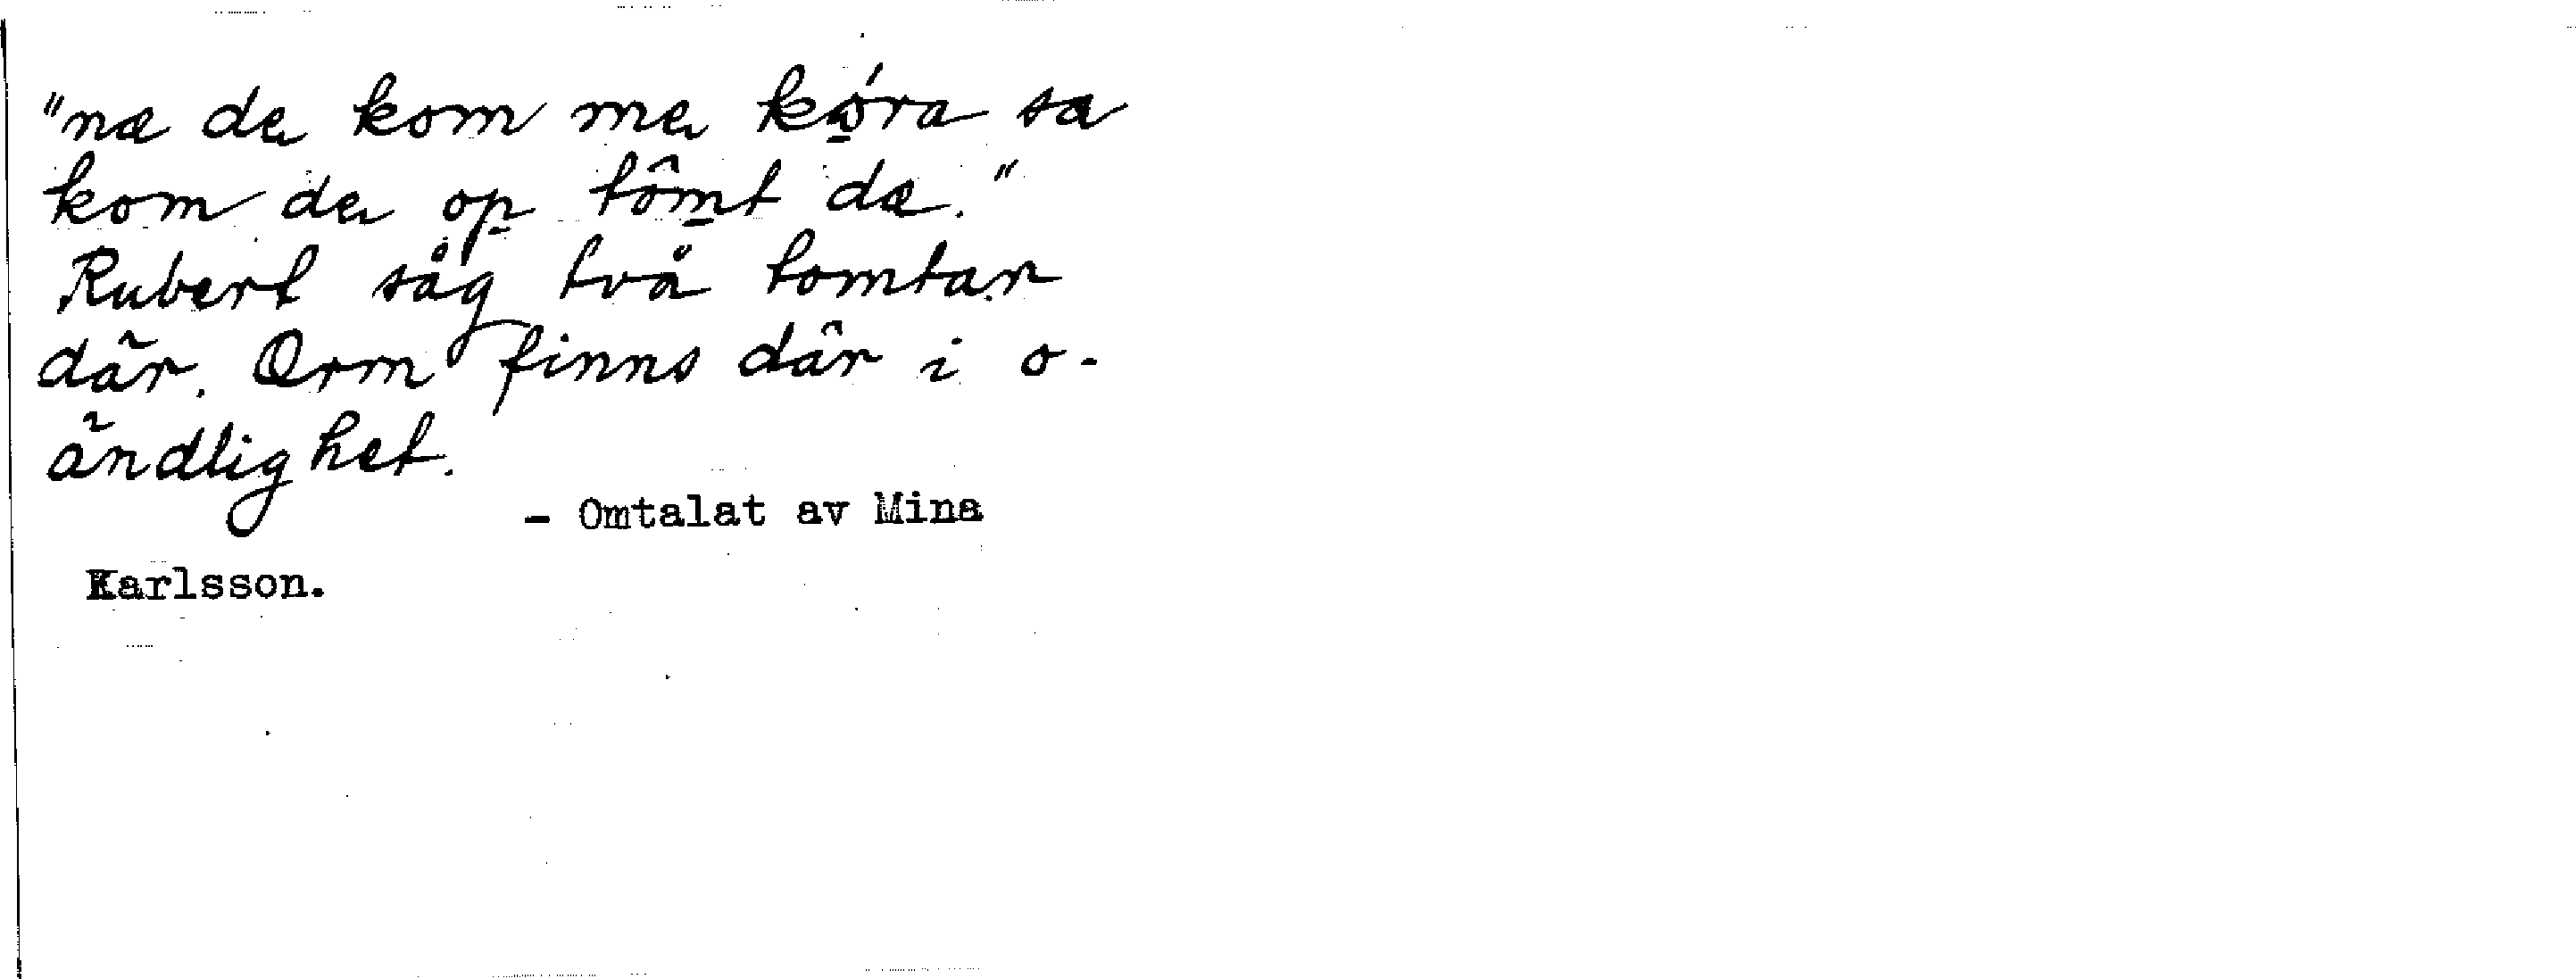 "næ de kom me køra sa
kom de op tômt dæ."
Rubert såg två tomtar
där. Orm finns där i o-
ändlighet.
- Omtalat av Mina
Karlsson.